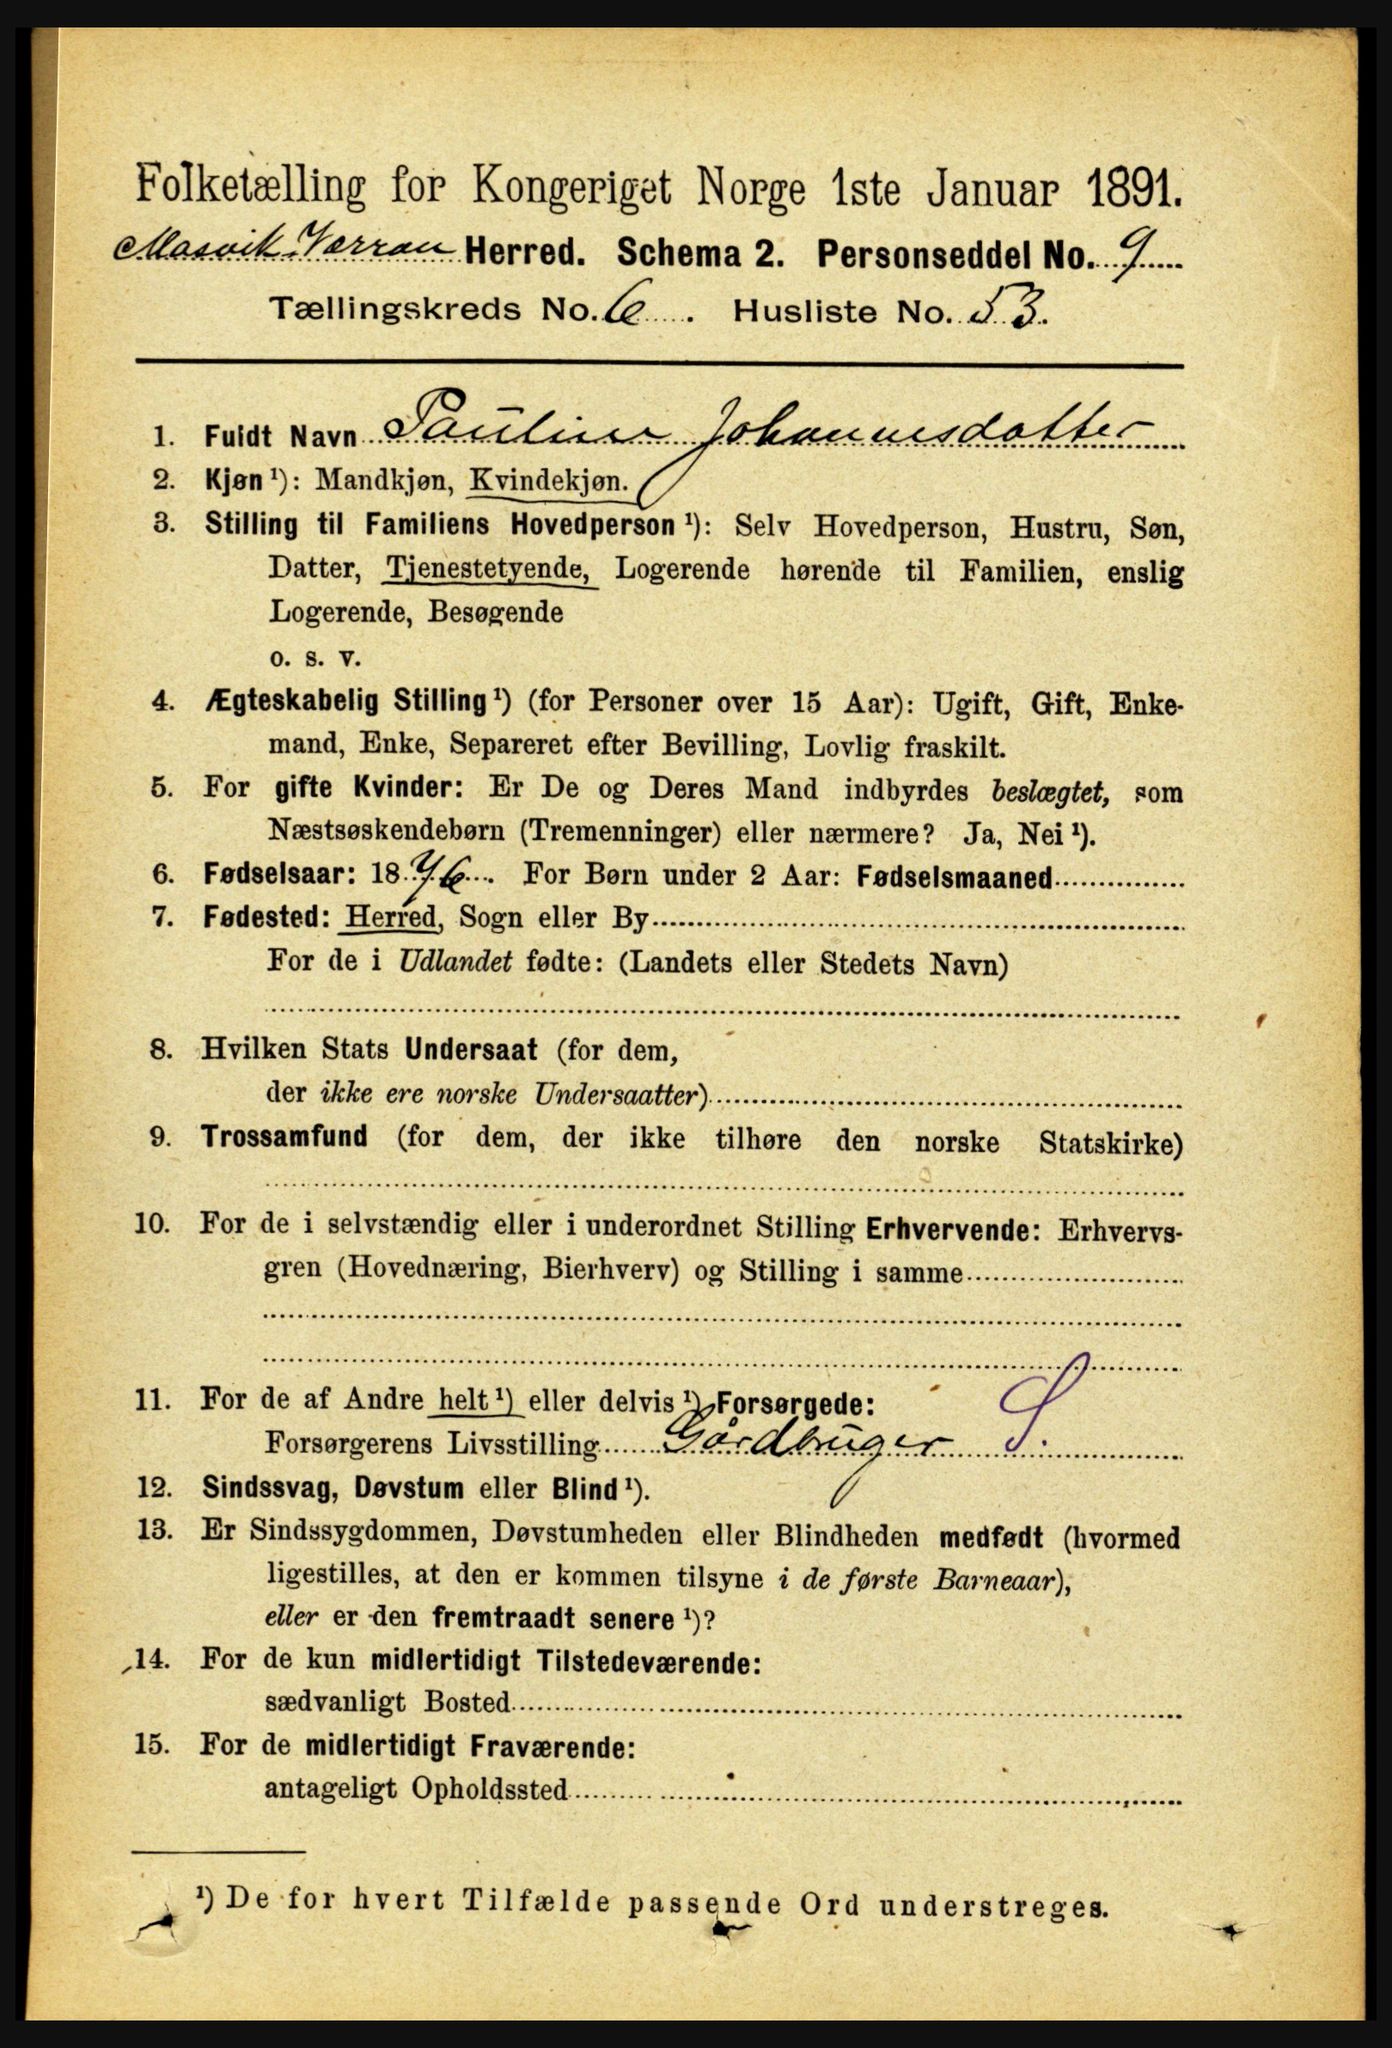 Folketælling for Kongeriget Norge 1ste Januar 1891.
Mosvik Værran Herred. Schema 2. Personseddel No. 9
Tællingskreds No. 6. Husliste No. 53.
1. Fuldt Navn Pauline Johannesdatter
2. Kjøn ¹): Mandkjøn, Kvindekjøn.
3. Stilling til Familiens Hovedperson ¹): Selv Hovedperson, Hustru, Søn,
Datter, Tjenestetyende, Logerende hørende til Familien, enslig
Logerende, Besøgende
o. s. v.
4. Ægteskabelig Stilling ¹) (for Personer over 15 Aar): Ugift, Gift, Enke-
mand, Enke, Separeret efter Bevilling, Lovlig fraskilt.
5. For gifte Kvinder: Er De og Deres Mand indbyrdes beslægtet, som
Næstsøskendebørn (Tremenninger) eller nærmere? Ja, Nei ¹).
6. Fødselsaar: 1876. For Børn under 2 Aar: Fødselsmaaned
7. Fødested: Herred, Sogn eller By
For de i Udlandet fødte: (Landets eller Stedets Navn)
8. Hvilken Stats Undersaat (for dem,
der ikke ere norske Undersaatter)
9. Trossamfund (for dem, der ikke tilhøre den norske Statskirke)
10. For de i selvstændig eller i underordnet Stilling Erhvervende: Erhvervs-
gren (Hovednæring, Bierhverv) og Stilling i samme
11. For de af Andre helt ¹) eller delvis ¹) Forsørgede:
Forsørgerens Livsstilling Gårdbruger S.
12. Sindssvag, Døvstum eller Blind ¹).
13. Er Sindssygdommen, Døvstumheden eller Blindheden medfødt (hvormed
ligestilles, at den er kommen tilsyne i de første Barneaar),
eller er den fremtraadt senere ¹)?
14. For de kun midlertidigt Tilstedeværende:
sædvanligt Bosted
15. For de midlertidigt Fraværende:
antageligt Opholdssted
¹) De for hvert Tilfælde passende Ord understreges.